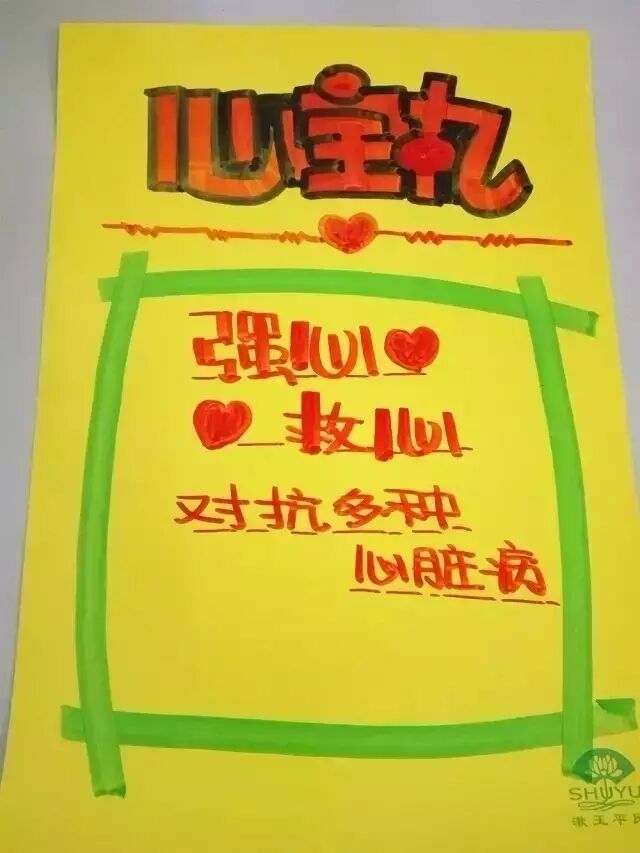 心宝丸
强心
救心
对抗多种
心脏病
SHUYU
漱玉平民